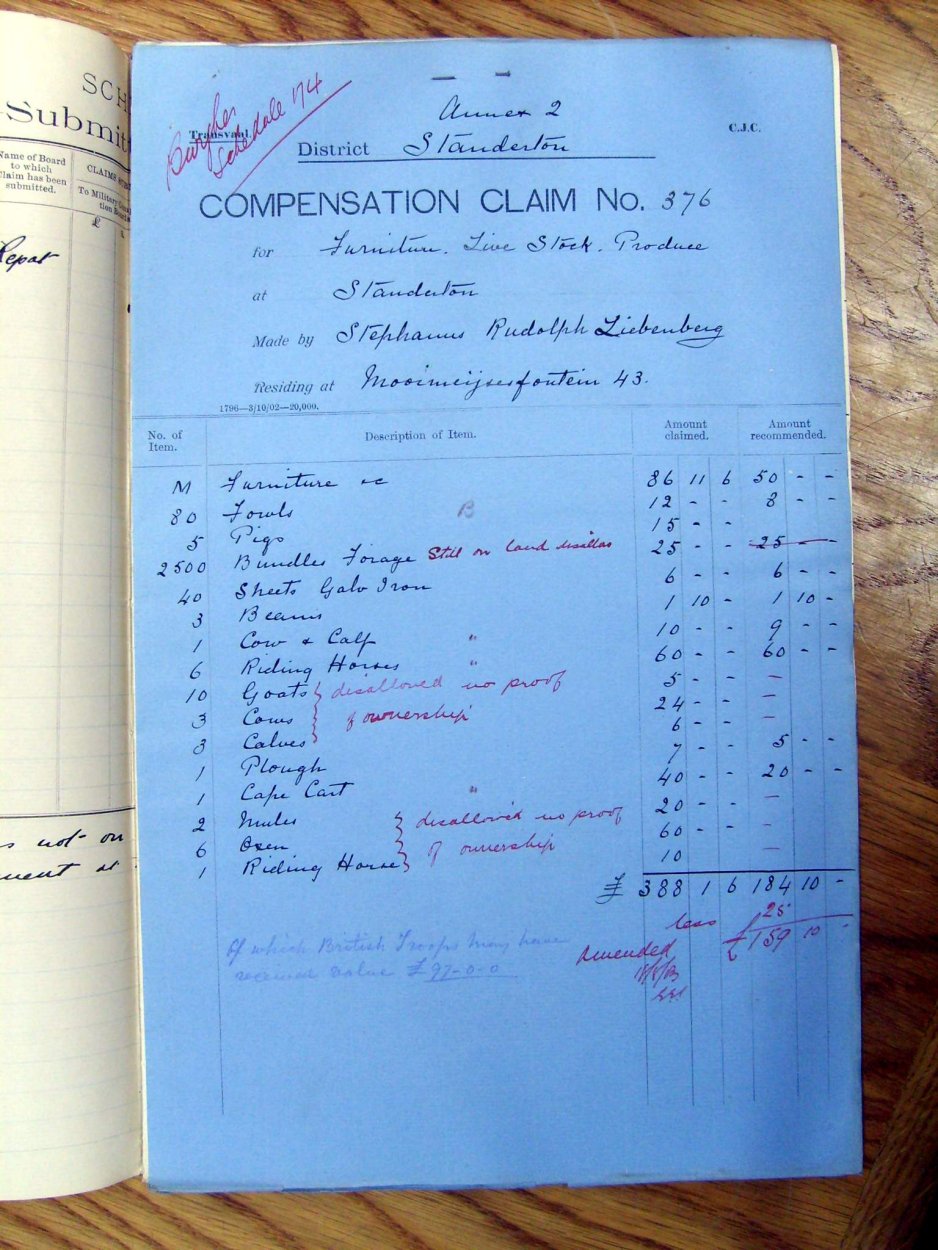 SCH
Submitt
Name of Board
to which
Claim has been
submitted.
CLAIMS
To Military
£
Repat
s not on
ment at
Burgher
Schedule 174
Transvaal.
Annex 2
C.J.C.
District Standerton
COMPENSATION CLAIM No. 376
for Furniture. Live Stock. Produce
at Standerton
Made by Stephanus Rudolph Liebenberg
Residing at Mooimeisjesfontein 43.
1796—3/10/02—20,000.
No. of Item. Description of Item. Amount claimed. Amount recommended.
M Furniture &c 86 11 6 50 - -
80 Fowls B 12 - - 8 - -
5 Pigs 15 - -
2500 Bundles Forage Still on land disallow 25 - - 25 - -
40 Sheets Galv Iron 6 - - 6 - -
3 Beams 1 10 - 1 10 -
1 Cow & Calf " 10 - - 9 - -
6 Riding Horses " 60 - - 60 - -
10 Goats } disallowed no proof 5 - - —
3 Cows } of ownership 24 - - —
3 Calves } 6 - - —
1 Plough 7 - - 5 - -
1 Cape Cart " 40 - - 20 - -
2 Mules } disallowed no proof 20 - - —
6 Oxen } of ownership 60 - - —
1 Riding Horse } 10 —
£ 388 1 6 184 10 -
less 25
£159 10 -
Amended
18/8/03
Of which British Troops may have
received value £97-0-0